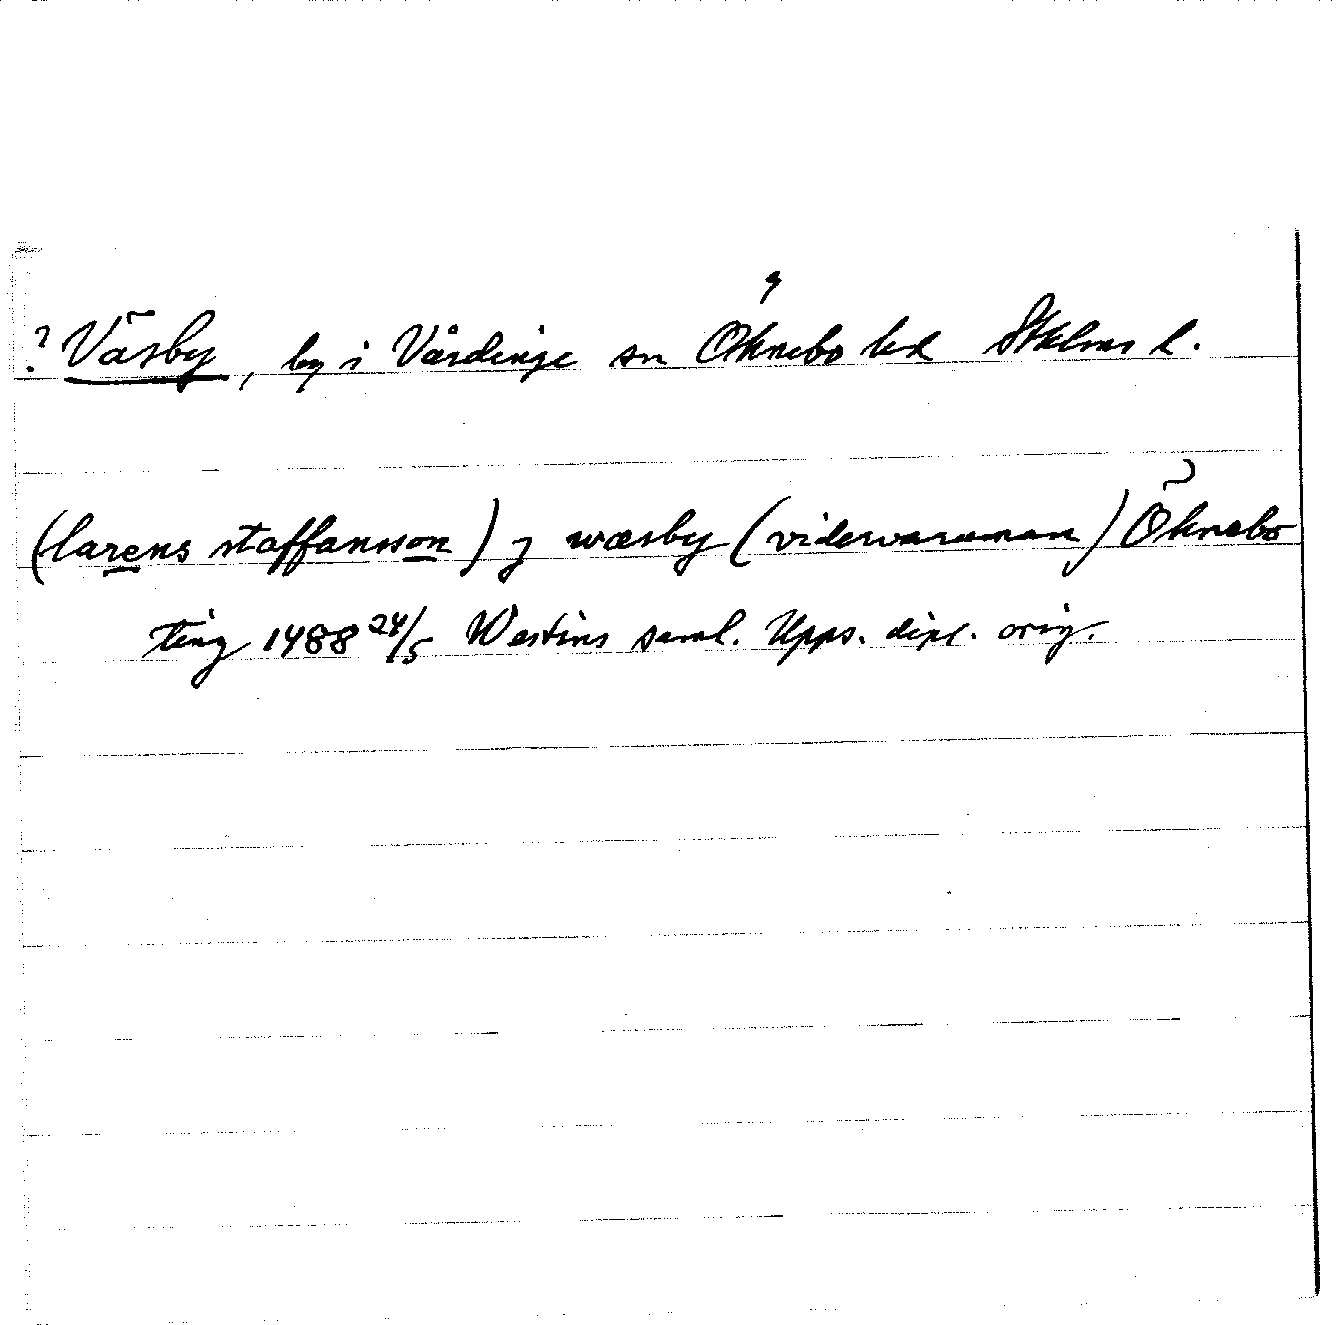 ? Väsby, by i Vårdinge sn Öknebo hd Sthlms l.
(larens staffansson) j wæsby (vidervaruman) Öknebo
ting 1488 24/5 Westins saml. Upps. dipl. orig.